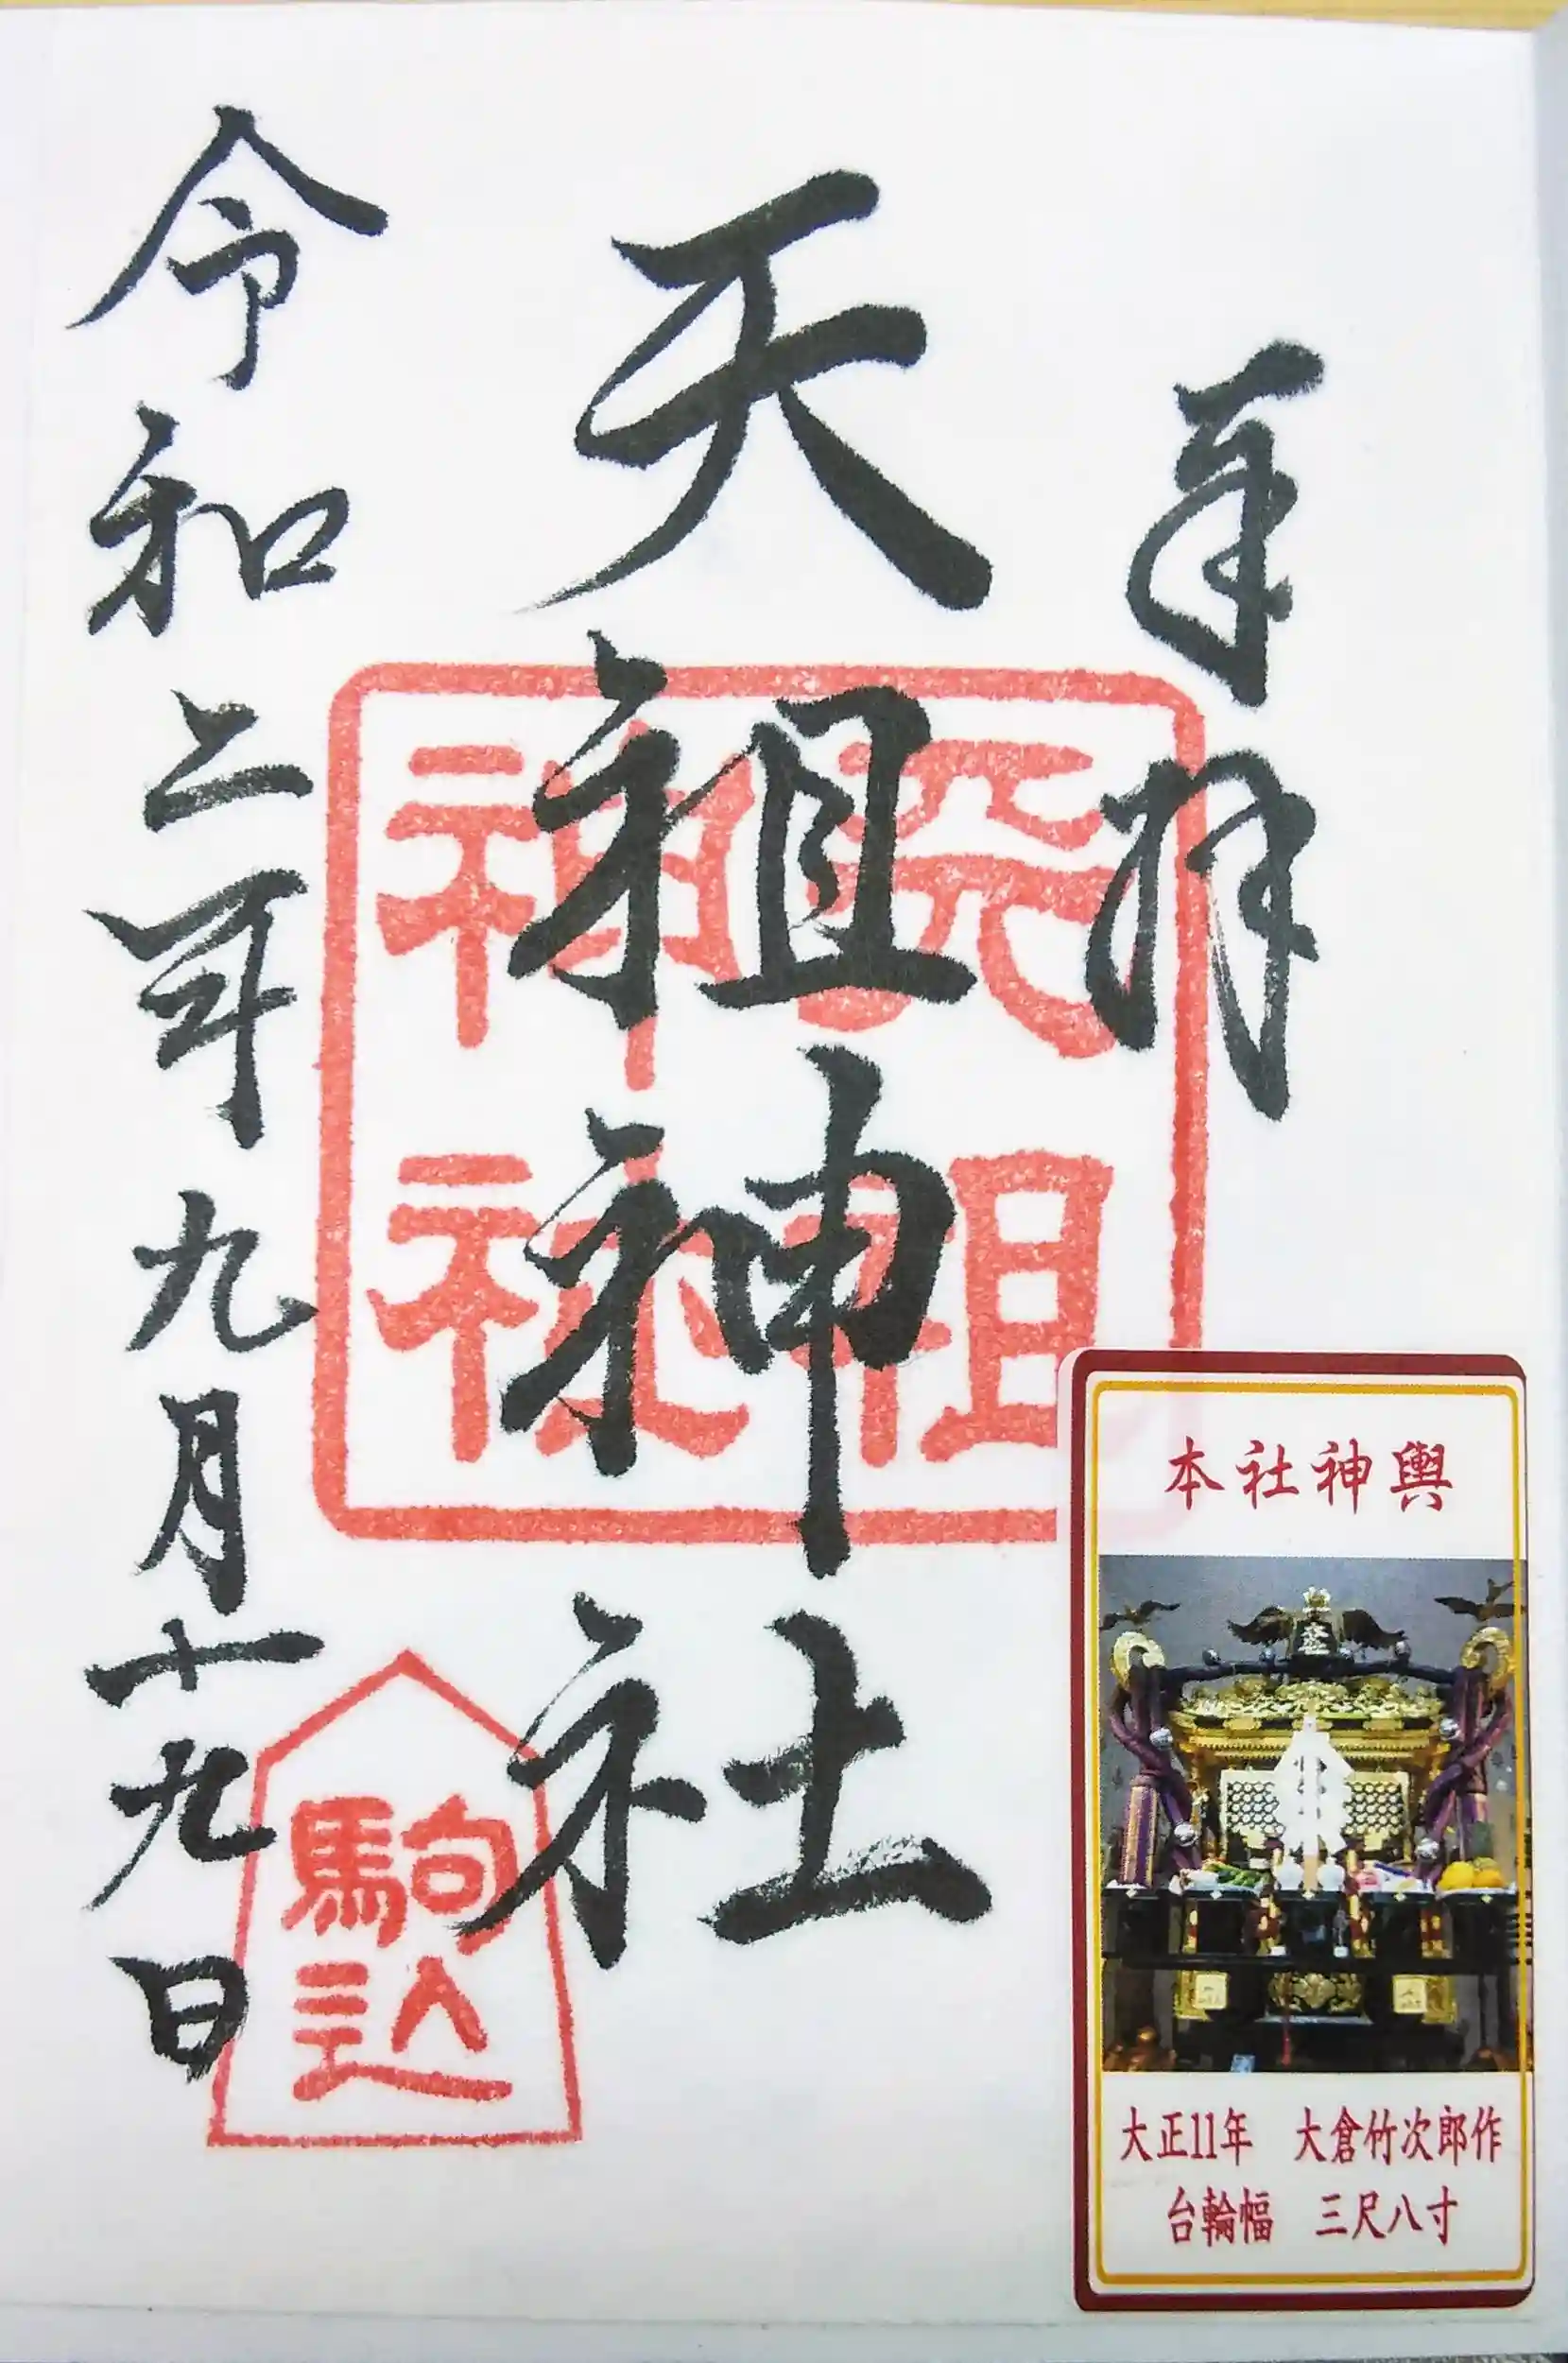 奉拝
天祖神社
令和二年九月十九日
天祖
神社
駒
込
本社神輿
大正11年 大倉竹次郎作
台輪幅 三尺八寸